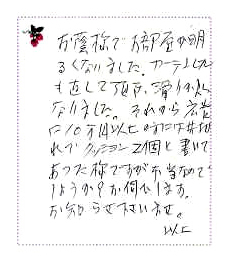 お蔭様で部屋が明
るくなりました。カーテンレール
も直して頂き、滑りが良く
なりました。それから広告
に10万円以上の時に
クッション2個と書いて
あった様ですがお当めで
しょうか?お伺いします。
お知らせ下さいませ。